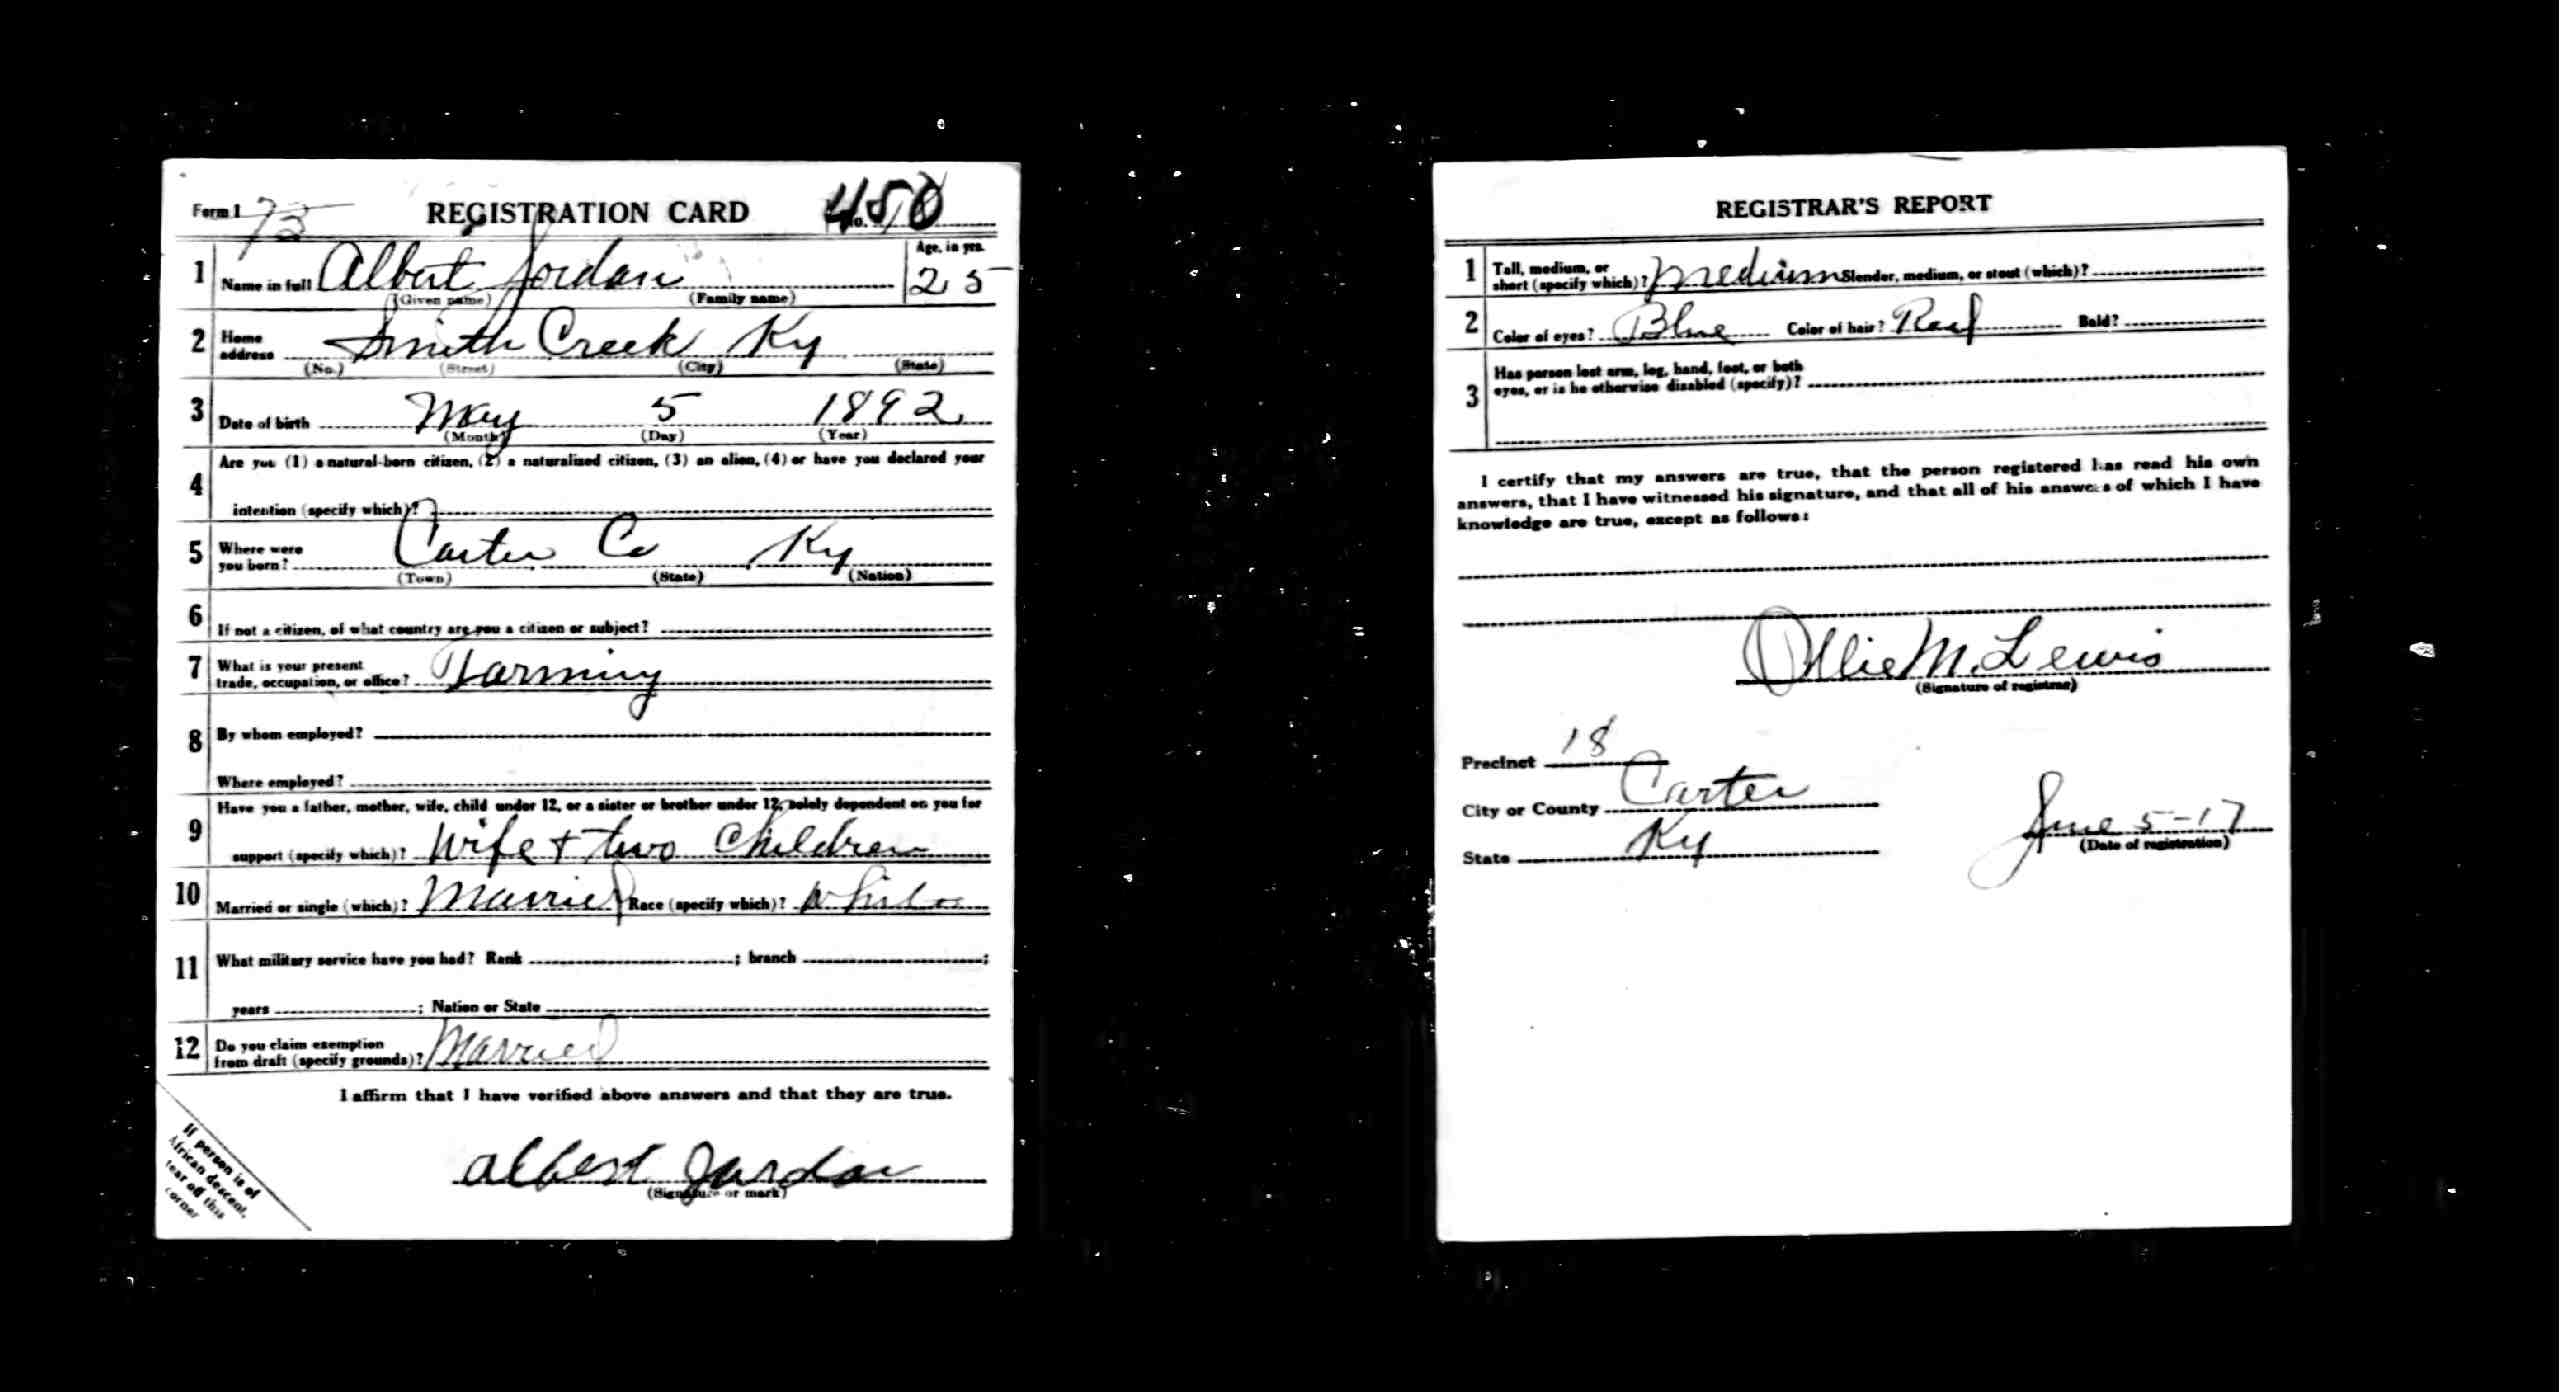 Form 1 73 REGISTRATION CARD No. 450
1 Name in full Albert Jordan Age, in yrs. 25
(Given name) (Family name)
2 Home address Smith Creek Ky
(No.) (Street) (City) (State)
3 Date of birth May 5 1892
(Month) (Day) (Year)
4 Are you (1) a natural-born citizen, (2) a naturalized citizen, (3) an alien, (4) or have you declared your
intention (specify which)?
5 Where were you born? Carter Co Ky
(Town) (State) (Nation)
6 If not a citizen, of what country are you a citizen or subject?
7 What is your present trade, occupation, or office? Farming
8 By whom employed?
Where employed?
9 Have you a father, mother, wife, child under 12, or a sister or brother under 12, solely dependent on you for
support (specify which)? Wife + two Children
10 Married or single (which)? Married Race (specify which)? White
11 What military service have you had? Rank ; branch ;
years ; Nation or State
12 Do you claim exemption from draft (specify grounds)? Married
I affirm that I have verified above answers and that they are true.
albert Jordan
(Signature or mark)
If person is of
African descent,
tear off this
corner
REGISTRAR'S REPORT
1 Tall, medium, or short (specify which)? Medium Slender, medium, or stout (which)?
2 Color of eyes? Blue Color of hair? Red Bald?
3 Has person lost arm, leg, hand, foot, or both
eyes, or is he otherwise disabled (specify)?
I certify that my answers are true, that the person registered has read his own
answers, that I have witnessed his signature, and that all of his answers of which I have
knowledge are true, except as follows:
Ollie M. Lewis
(Signature of registrar)
Precinct 18
City or County Carter
State Ky
June 5-17
(Date of registration)